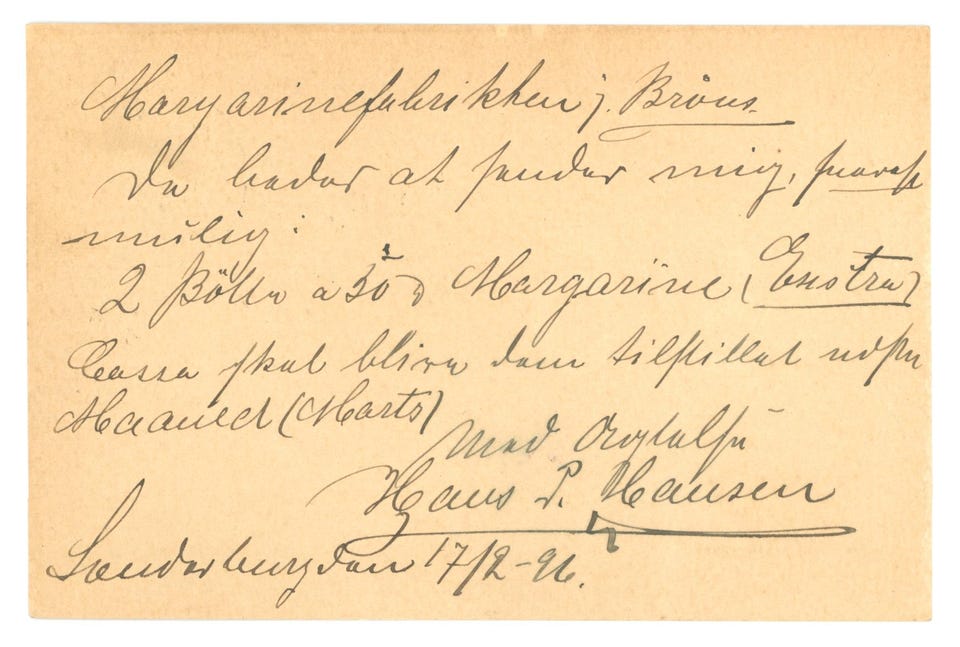 Margarinefabrikken j. Bröns
De beder at sender mig, snarest
mülig:
2 Bötter a 30 ℔ Margarine (Exstra)
Cassa skal blive dem tilstillet
Maaned (Marts)
Med Agtelse
Hans P. Hansen
Sonderburg den 17/2-96.